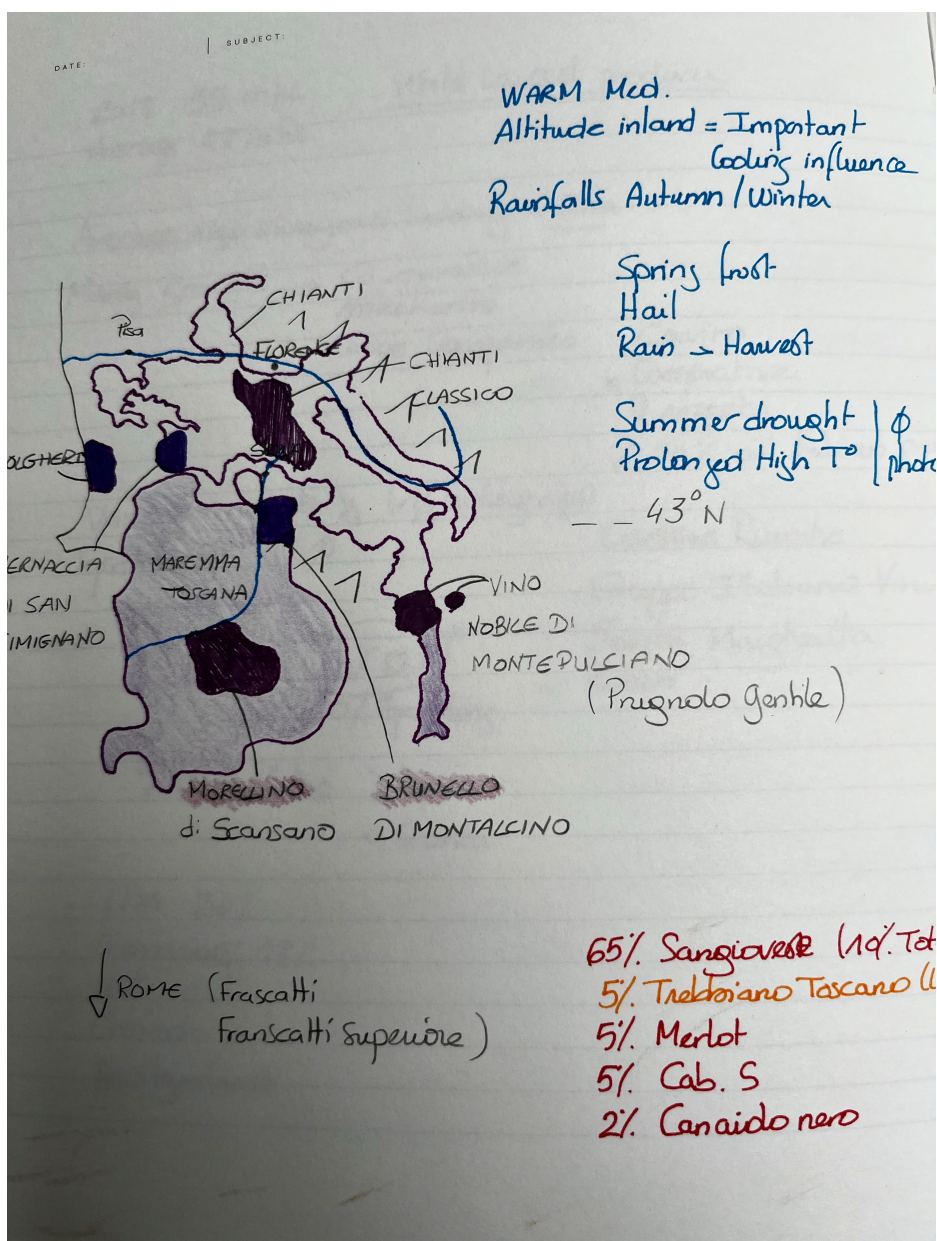 SUBJECT:
DATE:
WARM Med.
Altitude inland = Important
Cooling influence
Rainfalls Autumn / Winter
Spring frost
Hail
Rain → Harvest
Summer drought | ϕ
Prolonged High T° | photo
_ _ 43°N
CHIANTI
Pisa
FLORENCE
CHIANTI
CLASSICO
OLGHERI
ERNACCIA
I SAN
IMIGNANO
MAREMMA
TOSCANA
VINO
NOBILE DI
MONTEPULCIANO
(Prugnolo Gentile)
MORELLINO
di Scansano
BRUNELLO
DI MONTALCINO
ROME (Frascatti
Franscatti Superiore)
65% Sangiovese (10% Tot
5% Trebbiano Toscano (
5% Merlot
5% Cab. S
2% Canaiolo nero